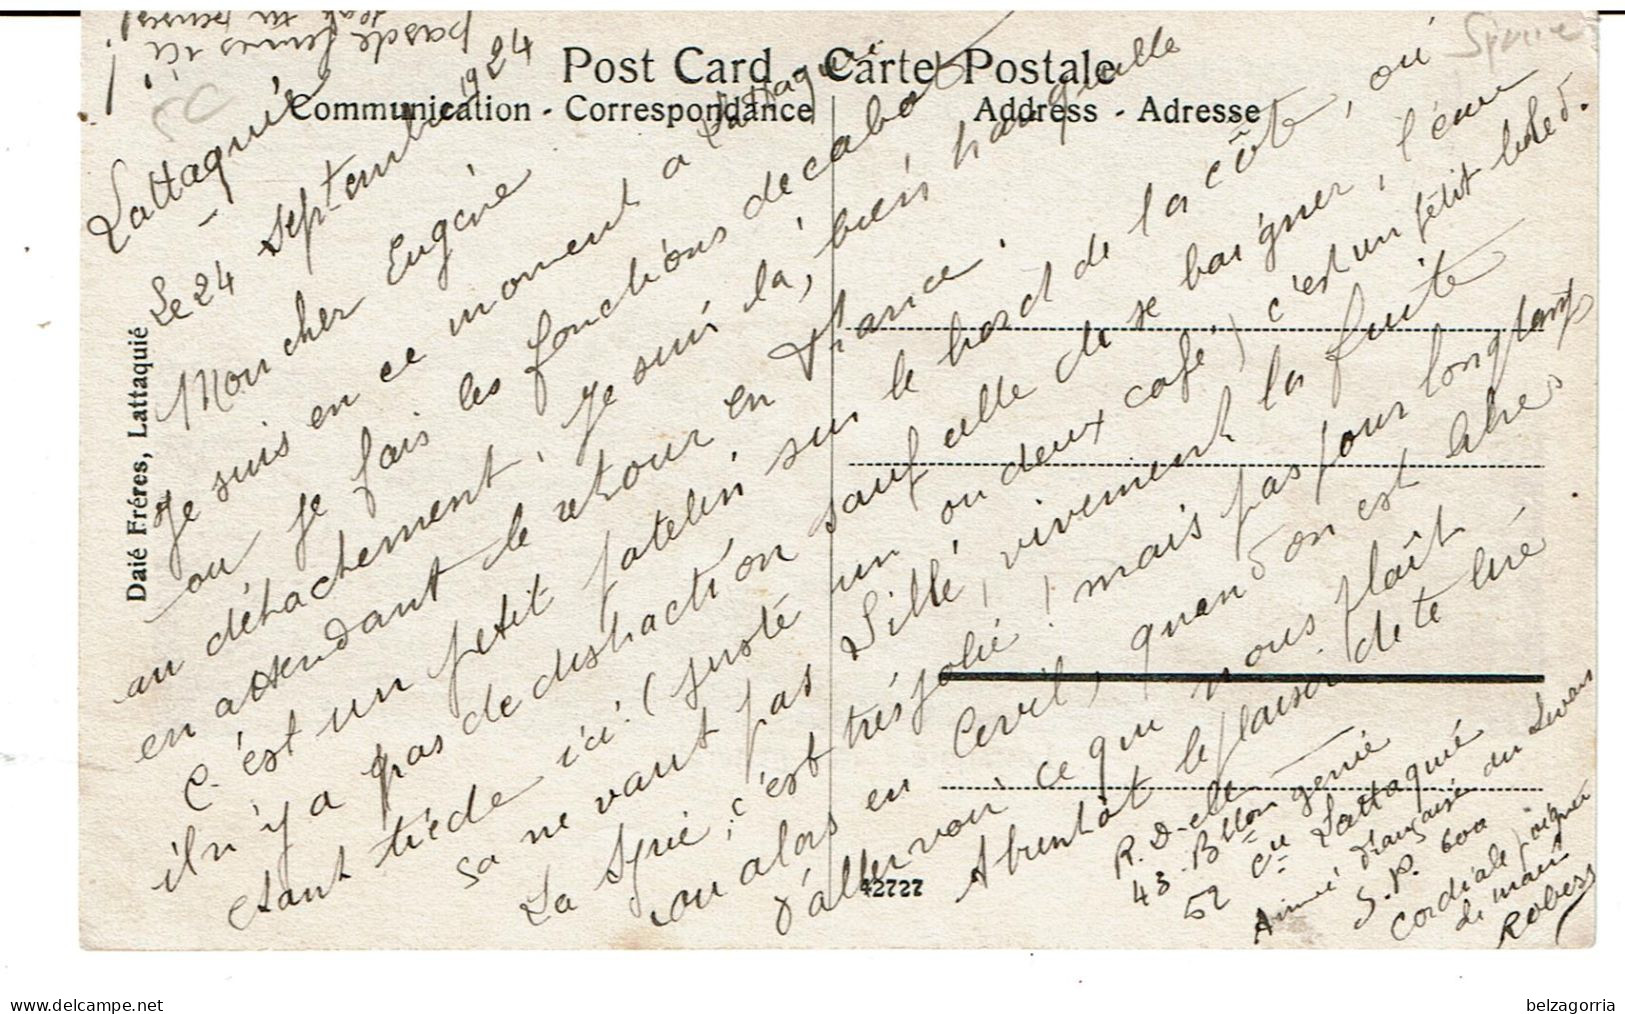 pas de femmes ici
Lattaquié
Le 24 Septembre 1924
Mon cher Eugène
Je suis en ce moment a Lattaquié
ou je fais les fonctions de cabot
au détachement, je suis là, bien tranquille
en attendant le retour en France.
C'est un petit patelin sur le bord de la côte, où
il n'y a pas de distraction sauf celle de se baigner, l'eau
etant tiède ici (juste un ou deux café) c'est un petit bled.
sa ne vaut pas Lille, vivement la fuite
La Syrie, c'est très jolie ! mais pas pour longtemps
ou alors en Civil, quand on est libre
d'aller voir ce qui vous plaît.
A bientôt le plaisir de te lire
R. D-elle
43. Bllon genie
52 Cie Lattaquié
Armé française du Levant
S.P. 600
Cordiale poignée
de main
Robert
Syrie
Post Card - Carte Postale
Communication - Correspondance
Address - Adresse
Daié Fréres, Lattaquié
42727
delcampe.net
belzagorria